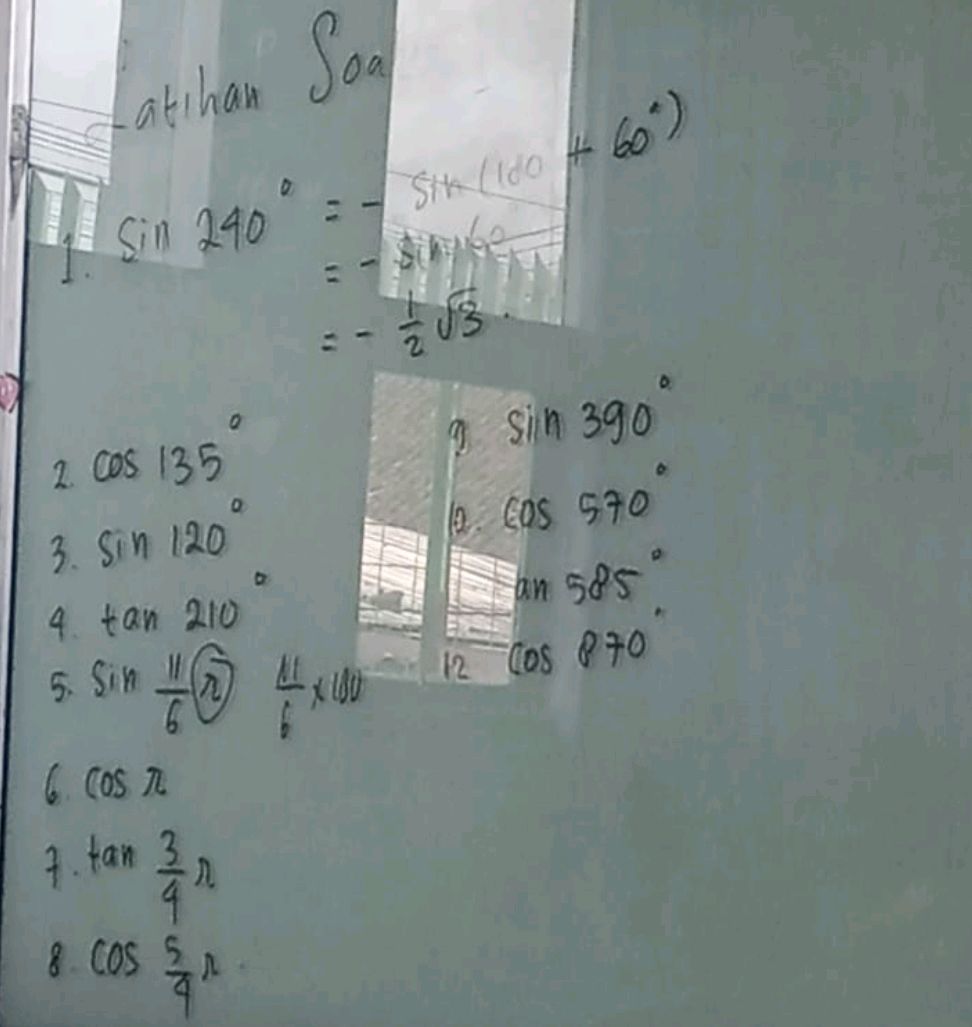 Latihan Soa
1. sin 240° = - sin (180 + 60°)
= - sin 60
= - 1/2 √3.
2. cos 135°
3. sin 120°
4. tan 210°
5. sin 11/6 π 11/6 x 180
6. cos π
7. tan 3/4 π
8. cos 5/4 π
9. sin 390°
10. cos 570°
an 585°
12 cos 870°